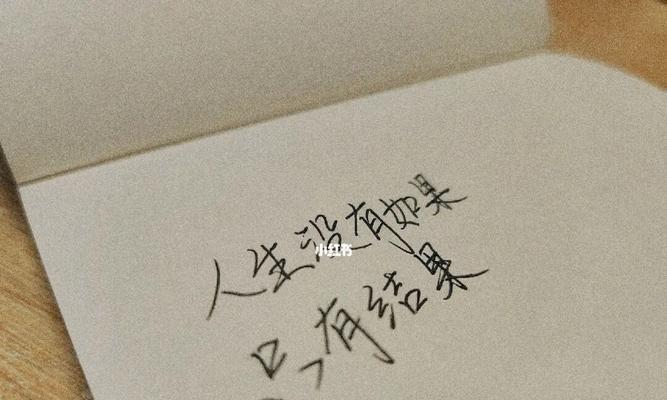 人生没有如果
小红书
只有结果